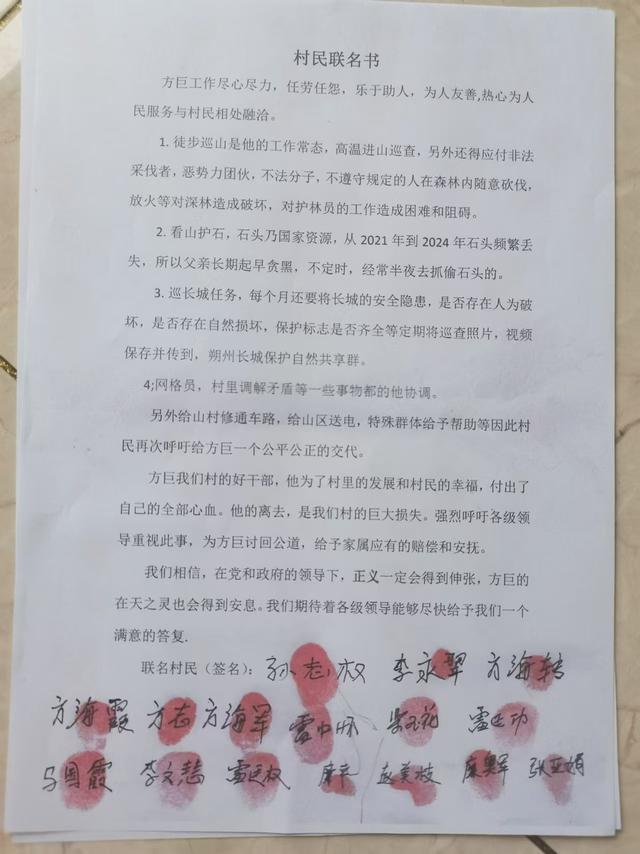 村民联名书
方巨工作尽心尽力，任劳任怨，乐于助人，为人友善,热心为人
民服务与村民相处融洽。
1. 徒步巡山是他的工作常态，高温进山巡查，另外还得应付非法
采伐者，恶势力团伙，不法分子，不遵守规定的人在森林内随意砍伐，
放火等对深林造成破坏，对护林员的工作造成困难和阻碍。
2. 看山护石，石头乃国家资源，从 2021 年到 2024 年石头频繁丢
失，所以父亲长期起早贪黑，不定时，经常半夜去抓偷石头的。
3. 巡长城任务，每个月还要将长城的安全隐患，是否存在人为破
坏，是否存在自然损坏，保护标志是否齐全等定期将巡查照片，视频
保存并传到，朔州长城保护自然共享群。
4;网格员，村里调解矛盾等一些事物都的他协调。
另外给山村修通车路，给山区送电，特殊群体给予帮助等因此村
民再次呼吁给方巨一个公平公正的交代。
方巨我们村的好干部，他为了村里的发展和村民的幸福，付出了
自己的全部心血。他的离去，是我们村的巨大损失。强烈呼吁各级领
导重视此事，为方巨讨回公道，给予家属应有的赔偿和安抚。
我们相信，在党和政府的领导下，正义一定会得到伸张，方巨的
在天之灵也会得到安息。我们期待着各级领导能够尽快给予我们一个
满意的答复.
联名村民（签名）：孙志权 李永翠 方海转
方海霞 方志 方海军 雷中怀 柴玉花 雷运功
马国霞 李文慧 雷运权 康平 赵美枝 康奥军 张亚娟